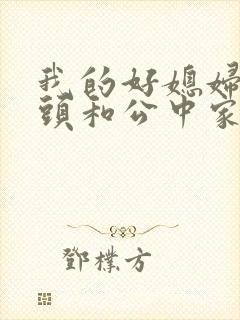 我的好媳婦
頭和公中家
鄧樸方